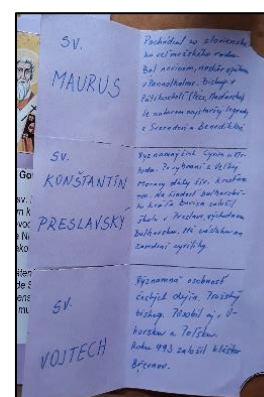 SV.
MAURUS
Pochádzal zo slovanske-
ho veľmožského rodu.
Bol mníchom, neskôr opátom
v Pannonhalme. Biskup v
Päťkostolí (Pécs, Maďarsko)
Je autorom najstaršej legendy
o Svoradovi a Benediktovi
SV.
KONŠTANTÍN
PRESLAVSKY
Významný žiak Cyrila a Me-
toda. Po vyhnaní z Veľkej
Moravy ďalej šíril
na žiadosť bulharské-
ho kráľa Borisa založil
školu v Preslave, východnom
Bulharsku. Má zásluhu na
zavedení cyriliky.
SV.
VOJTECH
Významná osobnosť
českých dejín. Pražský
biskup. Pôsobil aj v U-
horsku a Poľsku.
Roku 993 založil kláštor
Břevnov.
Go
sv.